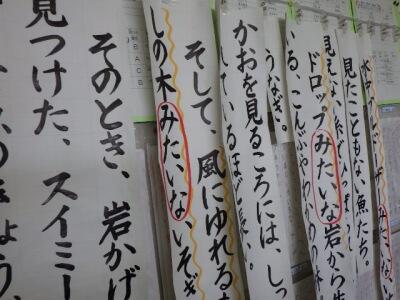 みたいな
見たこともない魚たち。
見えない糸でひっぱ
ドロップみたいな岩から生
いる、こんぶやわかめの林
うなぎ。
かおを見るころには、しっ
ているほど長い。
そして、風にゆれるも
しの木みたいないそぎ
そのとき、岩かげ
見つけた、スイミー
のきょう